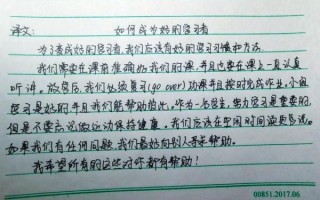 译文: 如何成为好的学习者
为了变成好的学习者,我们应该有好的学习习惯和方法.
我们需要在课前准备好我们的课,并且也要在课上一直认真
听讲。放学后,我们必须复习(go over)功课并且按时完成作业,小组
学习是好的并且我们能帮助彼此。作为一名学生,努力学习是重要的,
但是不要忘记做运动保持健康。我们应该在空闲时间读更多书。
如果我们有任何问题,我们最好向别人寻求帮助。
我希望所有的这些对你都有帮助!
00851.2017.06